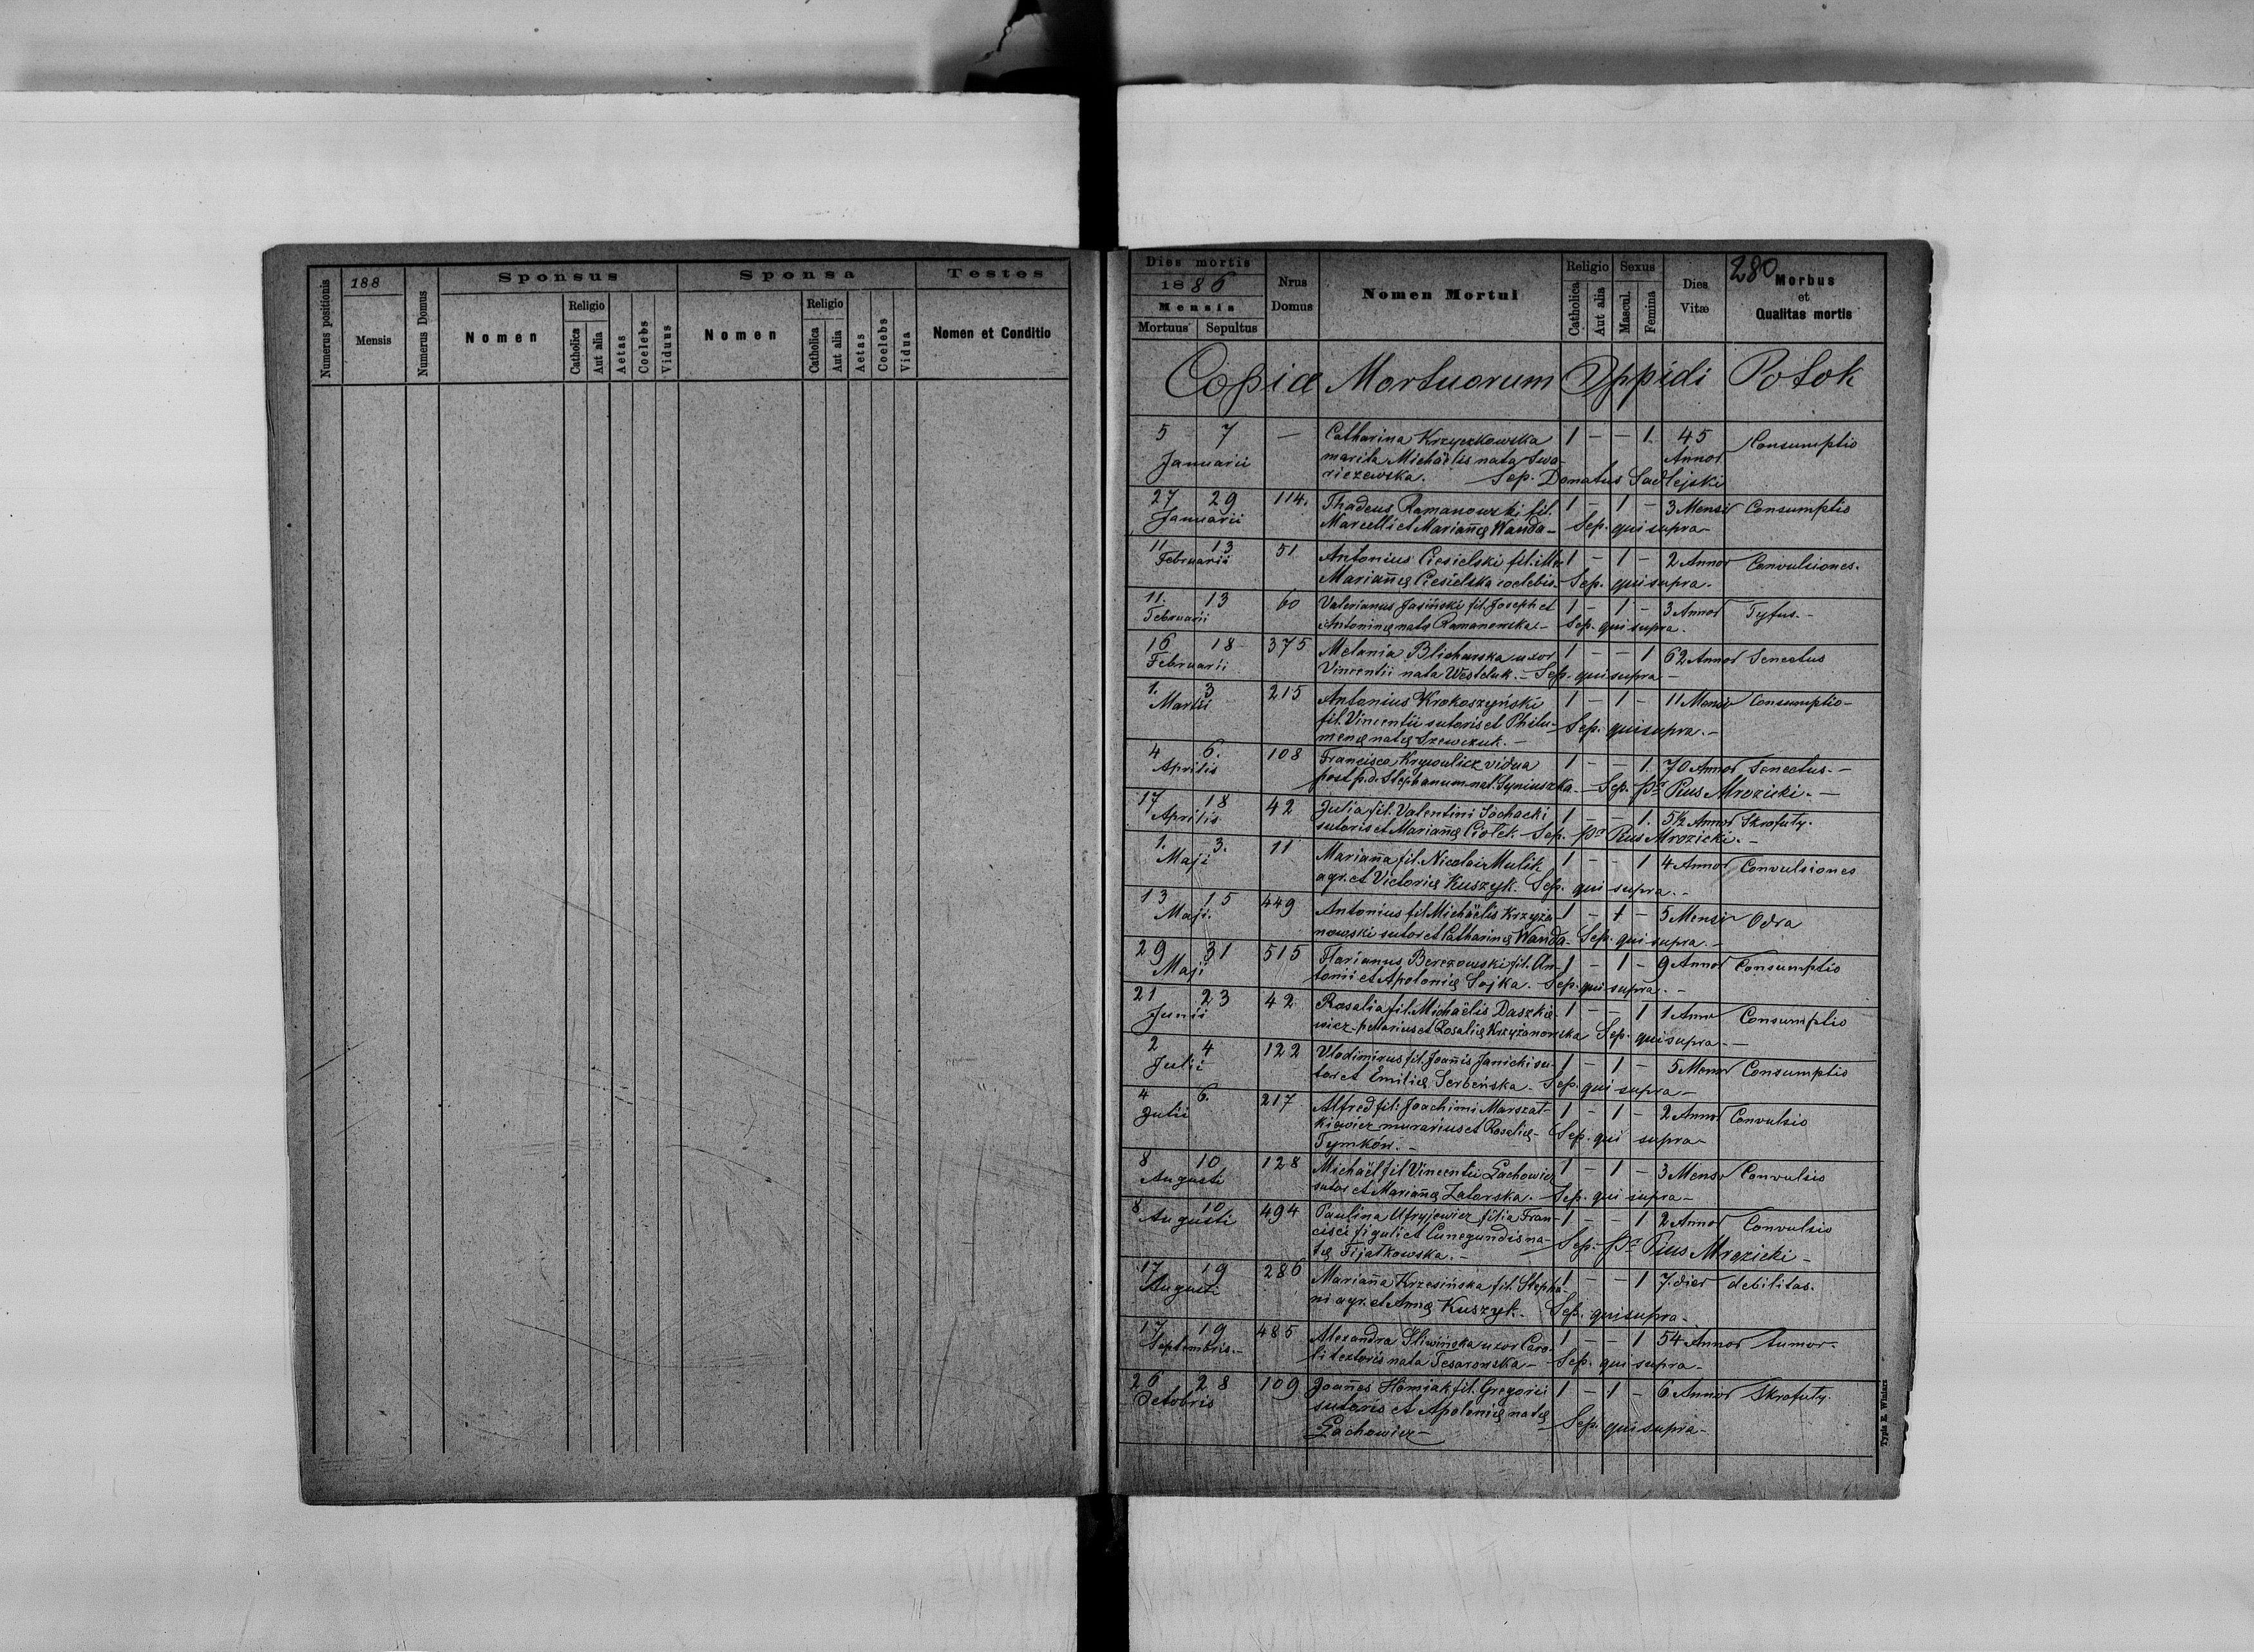 Numerus positionis
188
Mensis
Numerus Domus
Sponsus
Nomen
Religio
Catholica
Aut alia
Aetas
Coelebs
Viduus
Sponsa
Nomen
Religio
Catholica
Aut alia
Aetas
Coelebs
Vidua
Testes
Nomen et Conditio
280
Dies mortis
1886
Mensis
Mortuus Sepultus
Nrus
Domus
Nomen Mortui
Religio
Catholica
Aut alia
Sexus
Mascul.
Femina
Dies
Vitæ
Morbus
et
Qualitas mortis
Copiæ Mortuorum Oppidi Potok
5 7 — Catharina Krzyczkowska 1 — — 1. 45 Consumptio
Januarii marita Michaëlis nata Swa- Annor
riczewska. Sep. Donatus Sadlejski
27 29 114. Thadeus Romanowski fil. 1 — 1 — 3 Mensi Consumptio
Januarii Marcelli et Mariannę Wanda — Sep. qui supra —
11 13 51 Antonius Ciesielski fil. 1 — 1 — 2 Annor Convulsiones.
Februarii Mariannę Ciesielska coelebis. — Sep. qui supra.
11. 13 60 Valerianus Jasiński fil. Joseph et 1 — 1 — 3 Annor Tyfus. —
Februarii Antoninę natę Romanowska — Sep. qui supra.
16 18 375 Melania Blicharska uxor 1 — — 1 62 Annor Senectus
Februarii Vincentii nata Westeluk. — Sep. qui supra —
1. 3 215 Antonius Krokoszyński 1 — 1 — 11 Mensi Consumptio —
Martii fil. Vincentii sutoris et Philo- Sep. qui supra. —
menę natę Szewczuk. —
4 6. 108 Francisca Krywulicz vidua 1 — — 1. 70 Annor Senectus. —
Aprilis post p.d. Stephanum nat. Syniuszka. — Sep. Pr Pius Mrozicki. —
17 18 42 Julia fil. Valentini Sochacki 1 — — 1. 5½ Annor Skrofuły.
Aprilis sutoris et Mariannę Ciołek. Sep. Pr Pius Mrozicki. —
1. 3. 11 Marianna fil. Nicolai Mulik 1 — — 1 4 Annor Convulsiones
Maji agr. et Victorię Kuszyk. Sep. qui supra. —
13 15 449 Antonius fil Michaëlis Krzyża- 1 — 1 — 5 Mensi Odra
Maji. nowski sutor et Catharinę Wanda — Sep. qui supra. —
29 31 515 Florianus Berezowski fil. An- 1 — 1 — 9 Annor Consumptio
Maji tonii et Apolonię Sojka. — Sep. qui supra. —
21 23 42 Rosalia fil. Michaëlis Daszkie- 1 — — 1 1 Anno Consumptio
Junii wicz et Rosalię Krzyżanowska Sep. qui supra. —
2 4 122 Vlodimirus fil. Joannis Janicki su- 1 — 1 — 5 Mens Consumptio
Julii tor et Emilię Serbeńska — Sep. qui supra —
4 6. 217 Alfred fil: Joachimi Marszał- 1 — 1 — 2 Annor Convulsio
Julii kiewicz murarius et Rosalię — Sep. qui supra —
Tymków. —
8 10 128 Michaël fil Vincentii Lachowicz 1 — 1 — 3 Mens Convulsio
Augusti sutor et Mariannę Zatorska. — Sep. qui supra —
8 10 494 Paulina Ufryjewicz filia Fran- 1 — — 1 2 Annor Convulsio
Augusti cisci figuli et Cunegundis na- Sep. — Pr Pius Mrozicki —
tę Fijałkowska. —
17 19 286 Marianna Krzesińska fil. Stepha- 1 — — 1 7. dier debilitas.
Augusti ni agr. et Annę Kuszyk. Sep. qui supra —
17 19 485 Alexandra Sliwińska uxor Caro- 1 — — 1 54 Annor tumor.
Septembris. — li textoris nata Tesarowska — Sep. qui supra —
26 28 109 Joannes Homiak fil. Gregorii 1 — 1 — 6 Annor Skrofuły.
Octobris sutoris et Apolonię natę Sep. qui supra —
Lachowicz —
Typis E. Winiarz